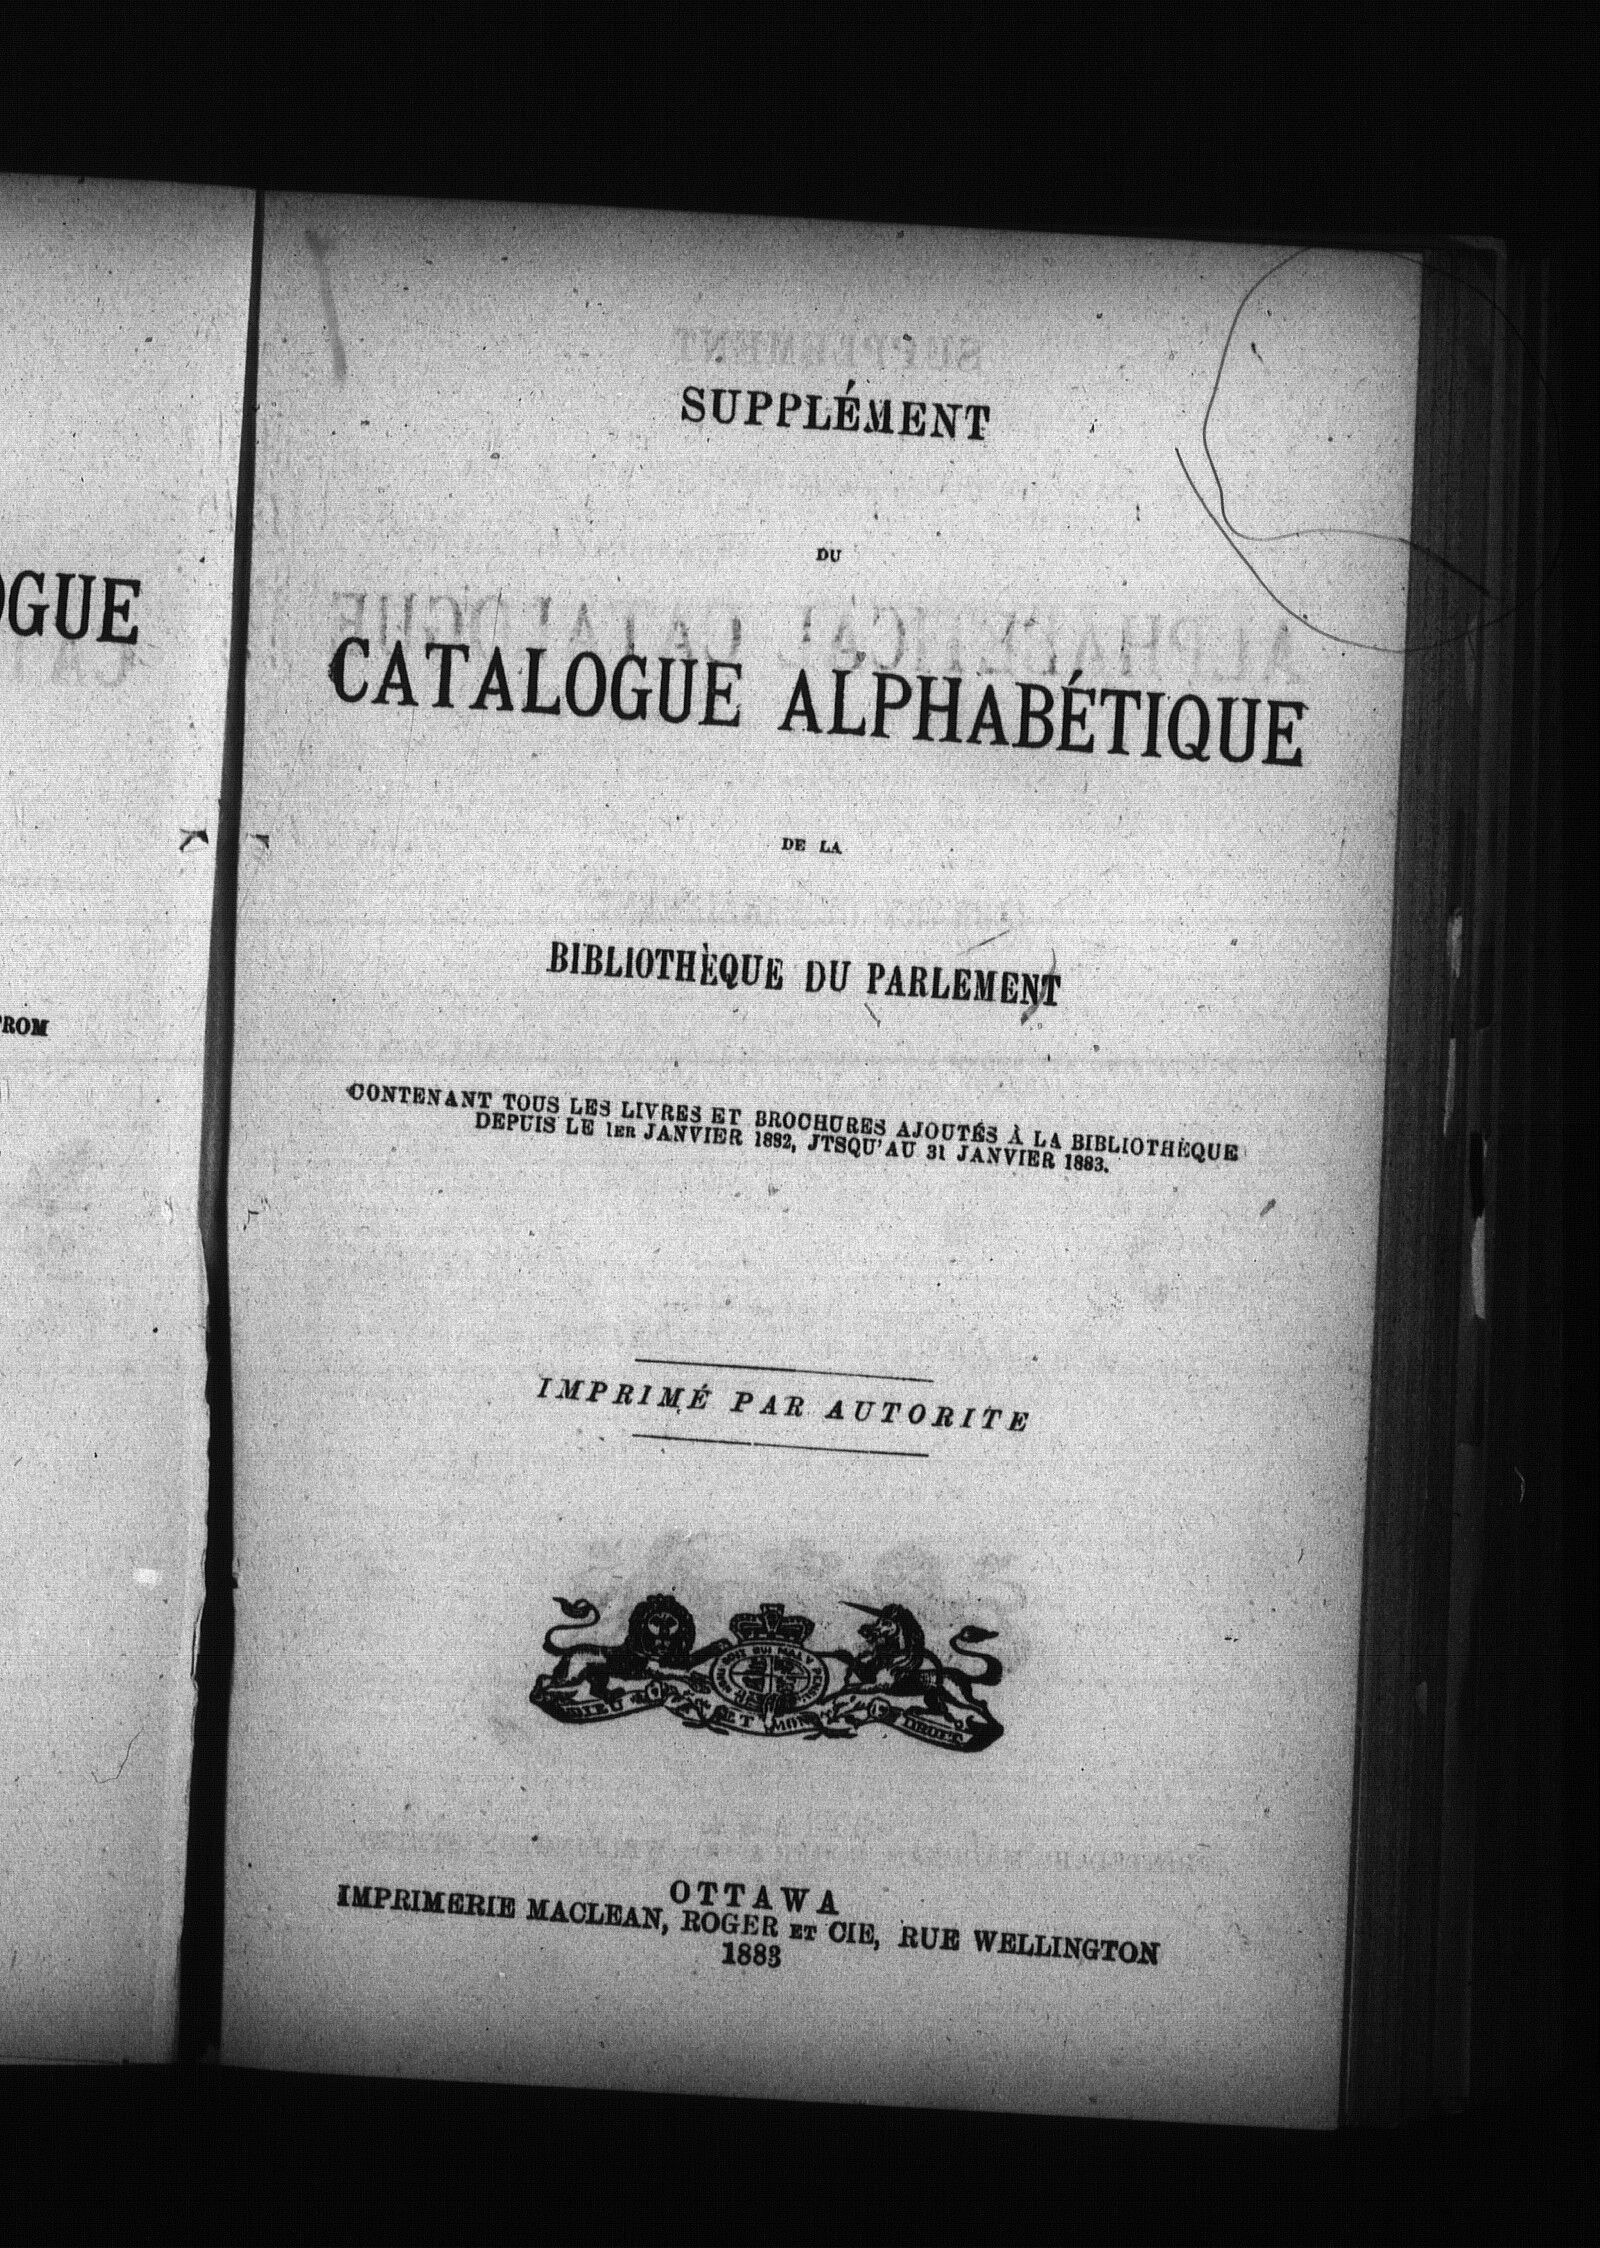 OGUE
FROM
SUPPLÉMENT
DU
CATALOGUE ALPHABÉTIQUE
DE LA
BIBLIOTHÈQUE DU PARLEMENT
CONTENANT TOUS LES LIVRES ET BROCHURES AJOUTÉS À LA BIBLIOTHÈQUE
DEPUIS LE 1ER JANVIER 1882, JTSQU'AU 31 JANVIER 1883.
IMPRIMÉ PAR AUTORITE
DIEU ET MON DROIT
OTTAWA
IMPRIMERIE MACLEAN, ROGER ET CIE, RUE WELLINGTON
1883